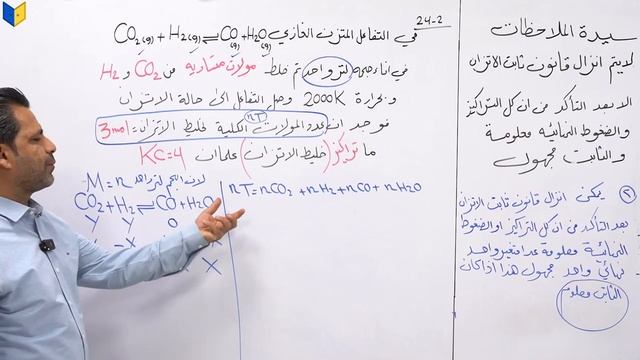 24-2
في التفاعل المتزن الغازي CO₂(g) + H₂(g) ⇌ CO(g) + H₂O(g)
في اناء حجمه لتر واحد تم خلط مولات متساويه من CO₂ و H₂
وبحرارة 2000K وصل التفاعل الى حالة الاتزان
فوجد ان عدد المولات (nT) الكلية لخليط الاتزان = 3mol
ما تراكيز (خليط الاتزان) علما ان Kc=4
M = n لان الحجم لتر واحد
CO₂ + H₂ ⇌ CO + H₂O
y y 0
-X
X X
nT = nCO₂ + nH₂ + nCO + nH₂O
سيدة الملاحظات
لا يتم انزال قانون ثابت الاتزان
الا بعد التأكد من ان كل التراكيز
والضغوط النهائية معلومة
والثابت مجهول
② يمكن انزال قانون ثابت الاتزان
بعد التأكد من ان كل التراكيز او الضغوط
النهائية معلومة عدا متغير واحد
نهائي واحد مجهول هذا اذا كان
الثابت معلوم